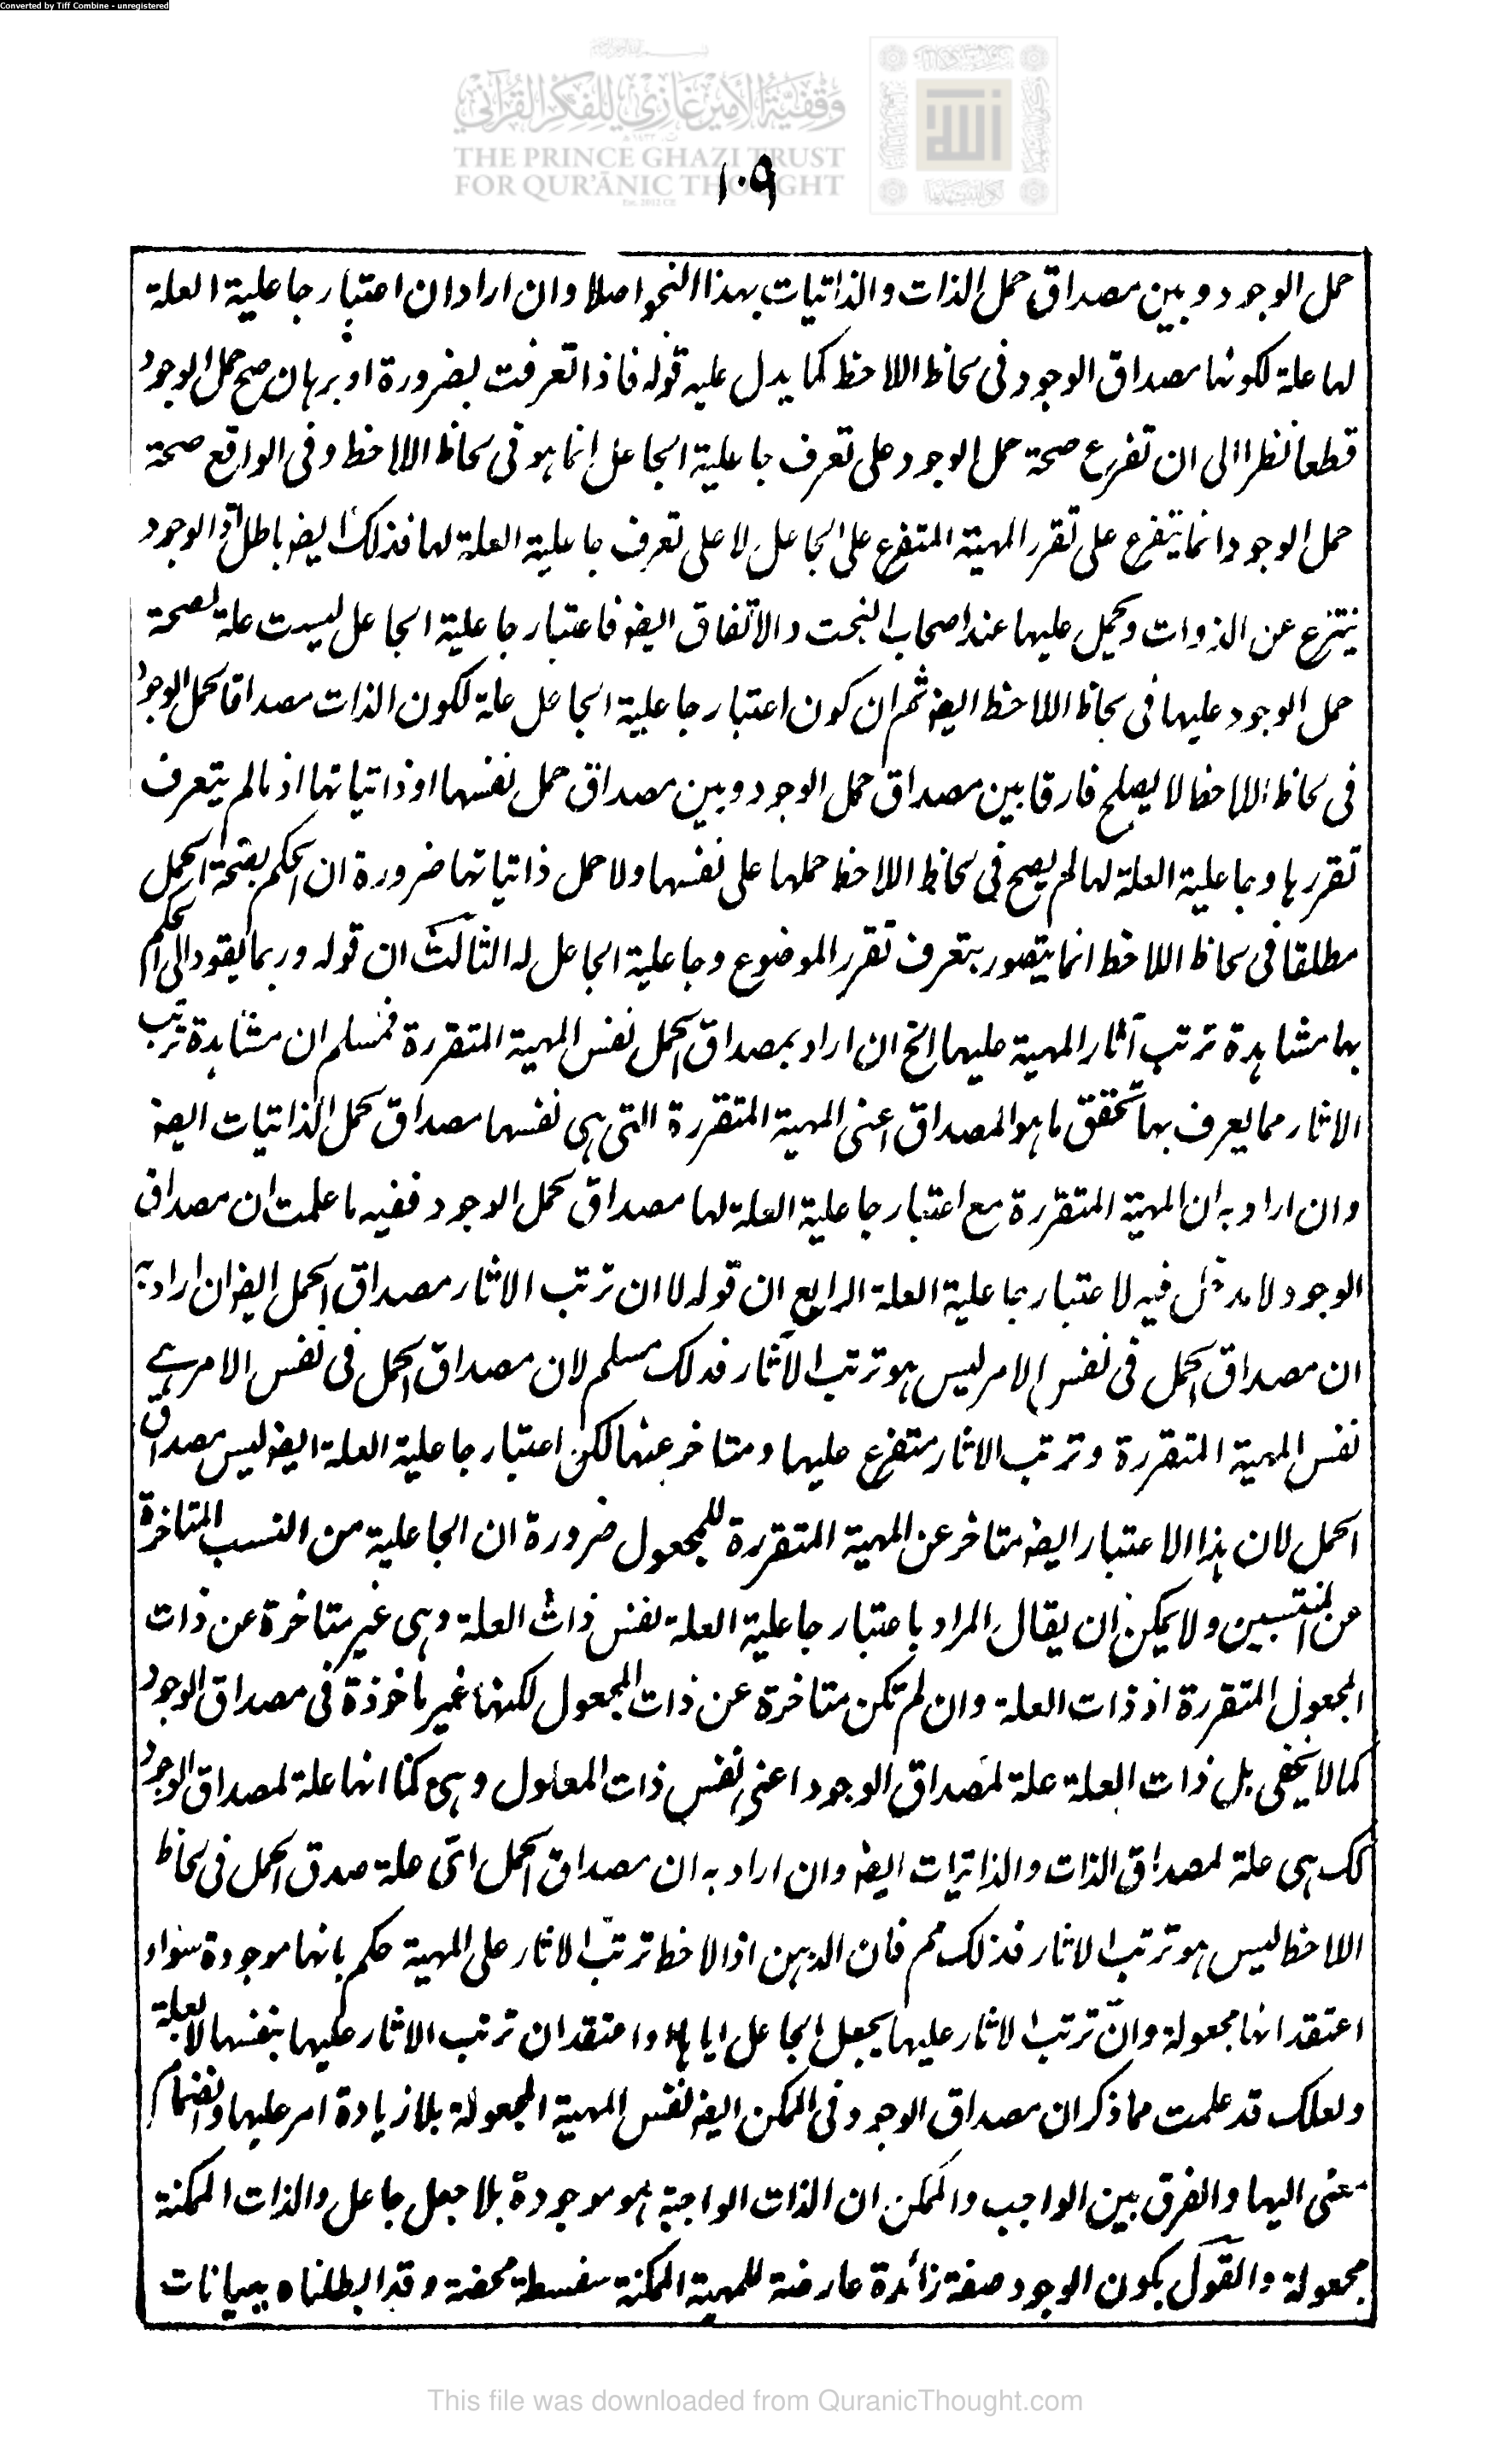 Converted by Tiff Combine - unregistered
وقفية الأمير غازي للفكر القرآني
THE PRINCE GHAZI TRUST
FOR QUR'ĀNIC THOUGHT
١٠٩
حمل الوجود وبين مصداق حمل الذات والذاتيات بهذا النحو اصلا وان اراد ان اعتبار جاعلية العلة
لها علة لكونها مصداق الوجود فى لحاظ اللاحظ كما يدل عليه قوله فاذا تعرفت بضرورة او برهان صح حمل الوجود
قطعا نظرا الى ان تفرع صحة حمل الوجود على تعرف جاعلية الجاعل انما هو فى لحاظ اللاحظ وفى الواقع صحة
حمل الوجود انما يتفرع على تقرر المهية المتفرع على الجاعل لا على تعرف جاعلية العلة لها فذلك ايضا باطل اذ الوجود
ينتزع عن الذوات ويحمل عليها عند اصحاب البخت والاتفاق ايضا فاعتبار جاعلية الجاعل ليست علة لصحة
حمل الوجود عليها فى لحاظ اللاحظ ايضا ثم ان كون اعتبار جاعلية الجاعل علة لكون الذات مصداقا لحمل الوجود
فى لحاظ اللاحظ لا يصلح فارقا بين مصداق حمل الوجود وبين مصداق حمل نفسها او ذاتياتها اذ ما لم يتعرف
تقررها وجاعلية العلة لها لم يصح فى لحاظ اللاحظ حملها على نفسها ولا حمل ذاتياتها ضرورة ان الحكم بصحة الحمل
مطلقا فى لحاظ اللاحظ انما يتصور بتعرف تقرر الموضوع وجاعلية الجاعل له الثالث ان قوله وربما يقود الى الحكم
بها مشاهدة ترتب آثار المهية عليها الخ ان اراد بمصداق الحمل نفس المهية المتقررة فمسلم ان مشاهدة ترتب
الاثار مما يعرف بها تحقق ما هو المصداق اعنى المهية المتقررة التى هى نفسها مصداق لحمل الذاتيات ايضا
وان اراد به ان المهية المتقررة مع اعتبار جاعلية العلة لها مصداق لحمل الوجود ففيه ما علمت ان مصداق
الوجود لا مدخل فيه لاعتبار جاعلية العلة الرابع ان قوله لا ان ترتب الاثار مصداق الحمل ايضا ان اراد به
ان مصداق الحمل فى نفس الامر ليس هو ترتب الآثار فذلك مسلم لان مصداق الحمل فى نفس الامر هى
نفس المهية المتقررة وترتب الاثار متفرع عليها ومتاخر عنها لكن اعتبار جاعلية العلة ايضا ليس مصداق
الحمل لان هذا الاعتبار ايضا متاخر عن المهية المتقررة للمجعول ضرورة ان الجاعلية من النسب المتاخرة
عن المنتسبين ولا يمكن ان يقال المراد باعتبار جاعلية العلة نفس ذات العلة وهى غير متاخرة عن ذات
المجعول المتقررة اذ ذات العلة وان لم تكن متاخرة عن ذات المجعول لكنها غير ماخوذة فى مصداق الوجود
كما لا يخفى بل ذات العلة علة لمصداق الوجود اعنى نفس ذات المعلول وهى كما انها علة لمصداق الوجود
كك هى علة لمصداق الذات والذاتيات ايضا وان اراد به ان مصداق الحمل اى علة صدق الحمل فى لحاظ
اللاحظ ليس هو ترتب الاثار فذلك مم فان الذهن اذا لاحظ ترتب الاثار على المهية حكم بانها موجودة سواء
اعتقد انها مجعولة وان ترتب الاثار عليها بجعل الجاعل اياها او اعتقد ان ترتب الاثار عليها بنفسها لا بعلة
ولعلك قد علمت مما ذكر ان مصداق الوجود فى الممكن ايضا نفس المهية المجعولة بلا زيادة امر عليها وانضمام
معنى اليها والفرق بين الواجب والممكن ان الذات الواجبة هو موجودة بلا جعل جاعل والذات الممكنة
مجعولة والقول بكون الوجود صفة زائدة عارضة للمهية الممكنة سفسطة محضة وقد ابطلناه ببيانات
This file was downloaded from QuranicThought.com